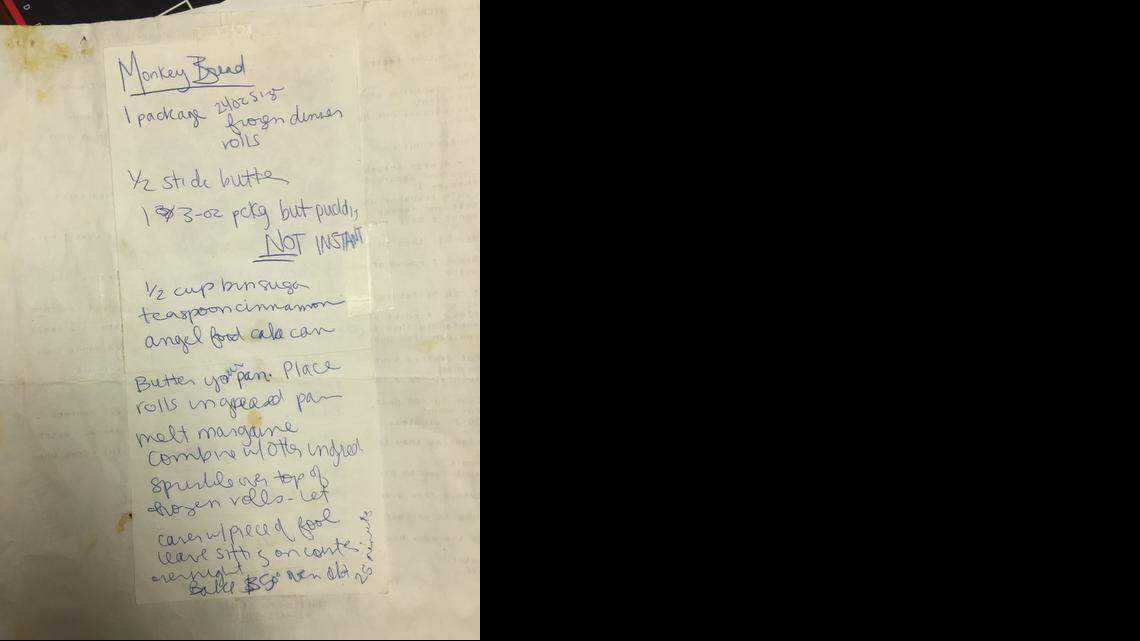 Monkey Bread
1 package 24oz size
frozen dinner
rolls
1/2 stick butter
1 3-oz pckg but pudding
NOT INSTANT
1/2 cup brn sugar
teaspoon cinnamon
angel food cake
Butter your pan. Place
rolls in greased pan
melt margarine
combine w/other ingred
sprinkle over top of
frozen rolls - let
cover w/piece of
leave sitting on counter
overnight
Bake 350° oven abt
25 minutes